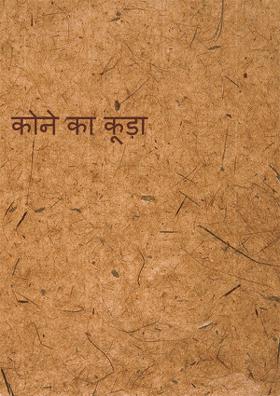 कोने का कूड़ा